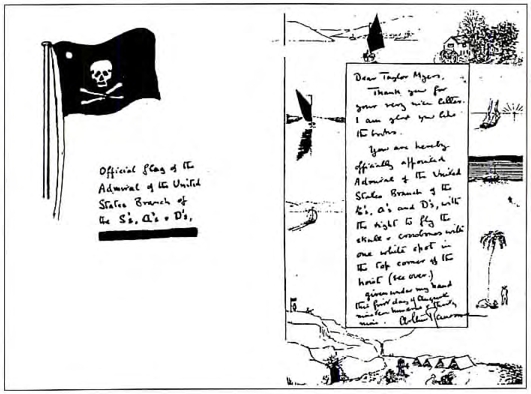 Official flag of the
Admiral of the United
States Branch of
the S's, A's & D's,
Dear Taylor Myers,
Thank you for
your very nice letter.
I am glad you like
the books.
You are hereby
officially appointed
Admiral of the United
States Branch of the
S's, A's and D's, with
the right to fly the
skull & crossbones with
one white spot in
the top corner of the
hoist (see over.)
given under my hand
this first day of August
nineteen hundred & thirty
nine. Arthur Ransome